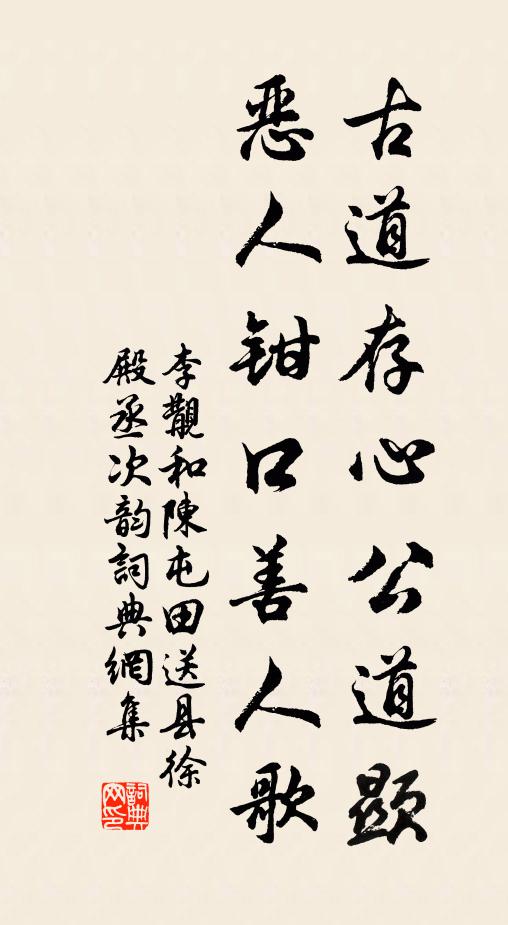 古道存心公道顕
惡人鉗口善人歌
李觀和陳屯田送县徐
殿丞次韵詞典網集
詞典网印